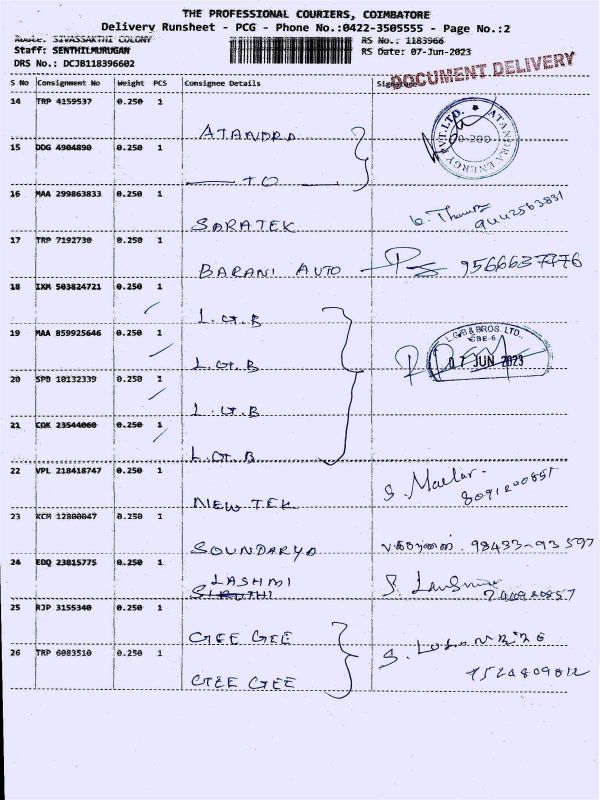 THE PROFESSIONAL COURIERS, COIMBATORE
Delivery Runsheet - PCG - Phone No.:0422-3505555 - Page No.:2
Route: SIVASSAKTHI COLONY
RS No.: 1183966
Staff: SENTHILMURUGAN
RS Date: 07-Jun-2023
DRS No.: DCJB118396602
DOCUMENT DELIVERY
S No Consignment No Weight PCS Consignee Details
14 TRP 4159537 0.250 1
ATANDRA
ATANDRA ENERGY PVT.LTD.
15 DDG 4904890 0.250 1
TO
16 MAA 299863833 0.250 1
SARATEK
17 TRP 7192730 0.250 1
BARANI AUTO 9566637776
18 IXM 503824721 0.250 1
L.G.B
19 MAA 859925646 0.250 1
L.G.B
L.G.B & BROS. LTD.,
CBE-6
07 JUN 2023
20 SPB 10132339 0.250 1
L.G.B
21 COK 23544060 0.250 1
L.G.B
22 VPL 218418747 0.250 1
NEW TEK
23 KCM 12800047 0.250 1
SOUNDARYA 98433-93597
24 EDQ 23815775 0.250 1
LASHMI
25 RJP 3155340 0.250 1
GEE GEE
26 TRP 6083510 0.250 1
GEE GEE